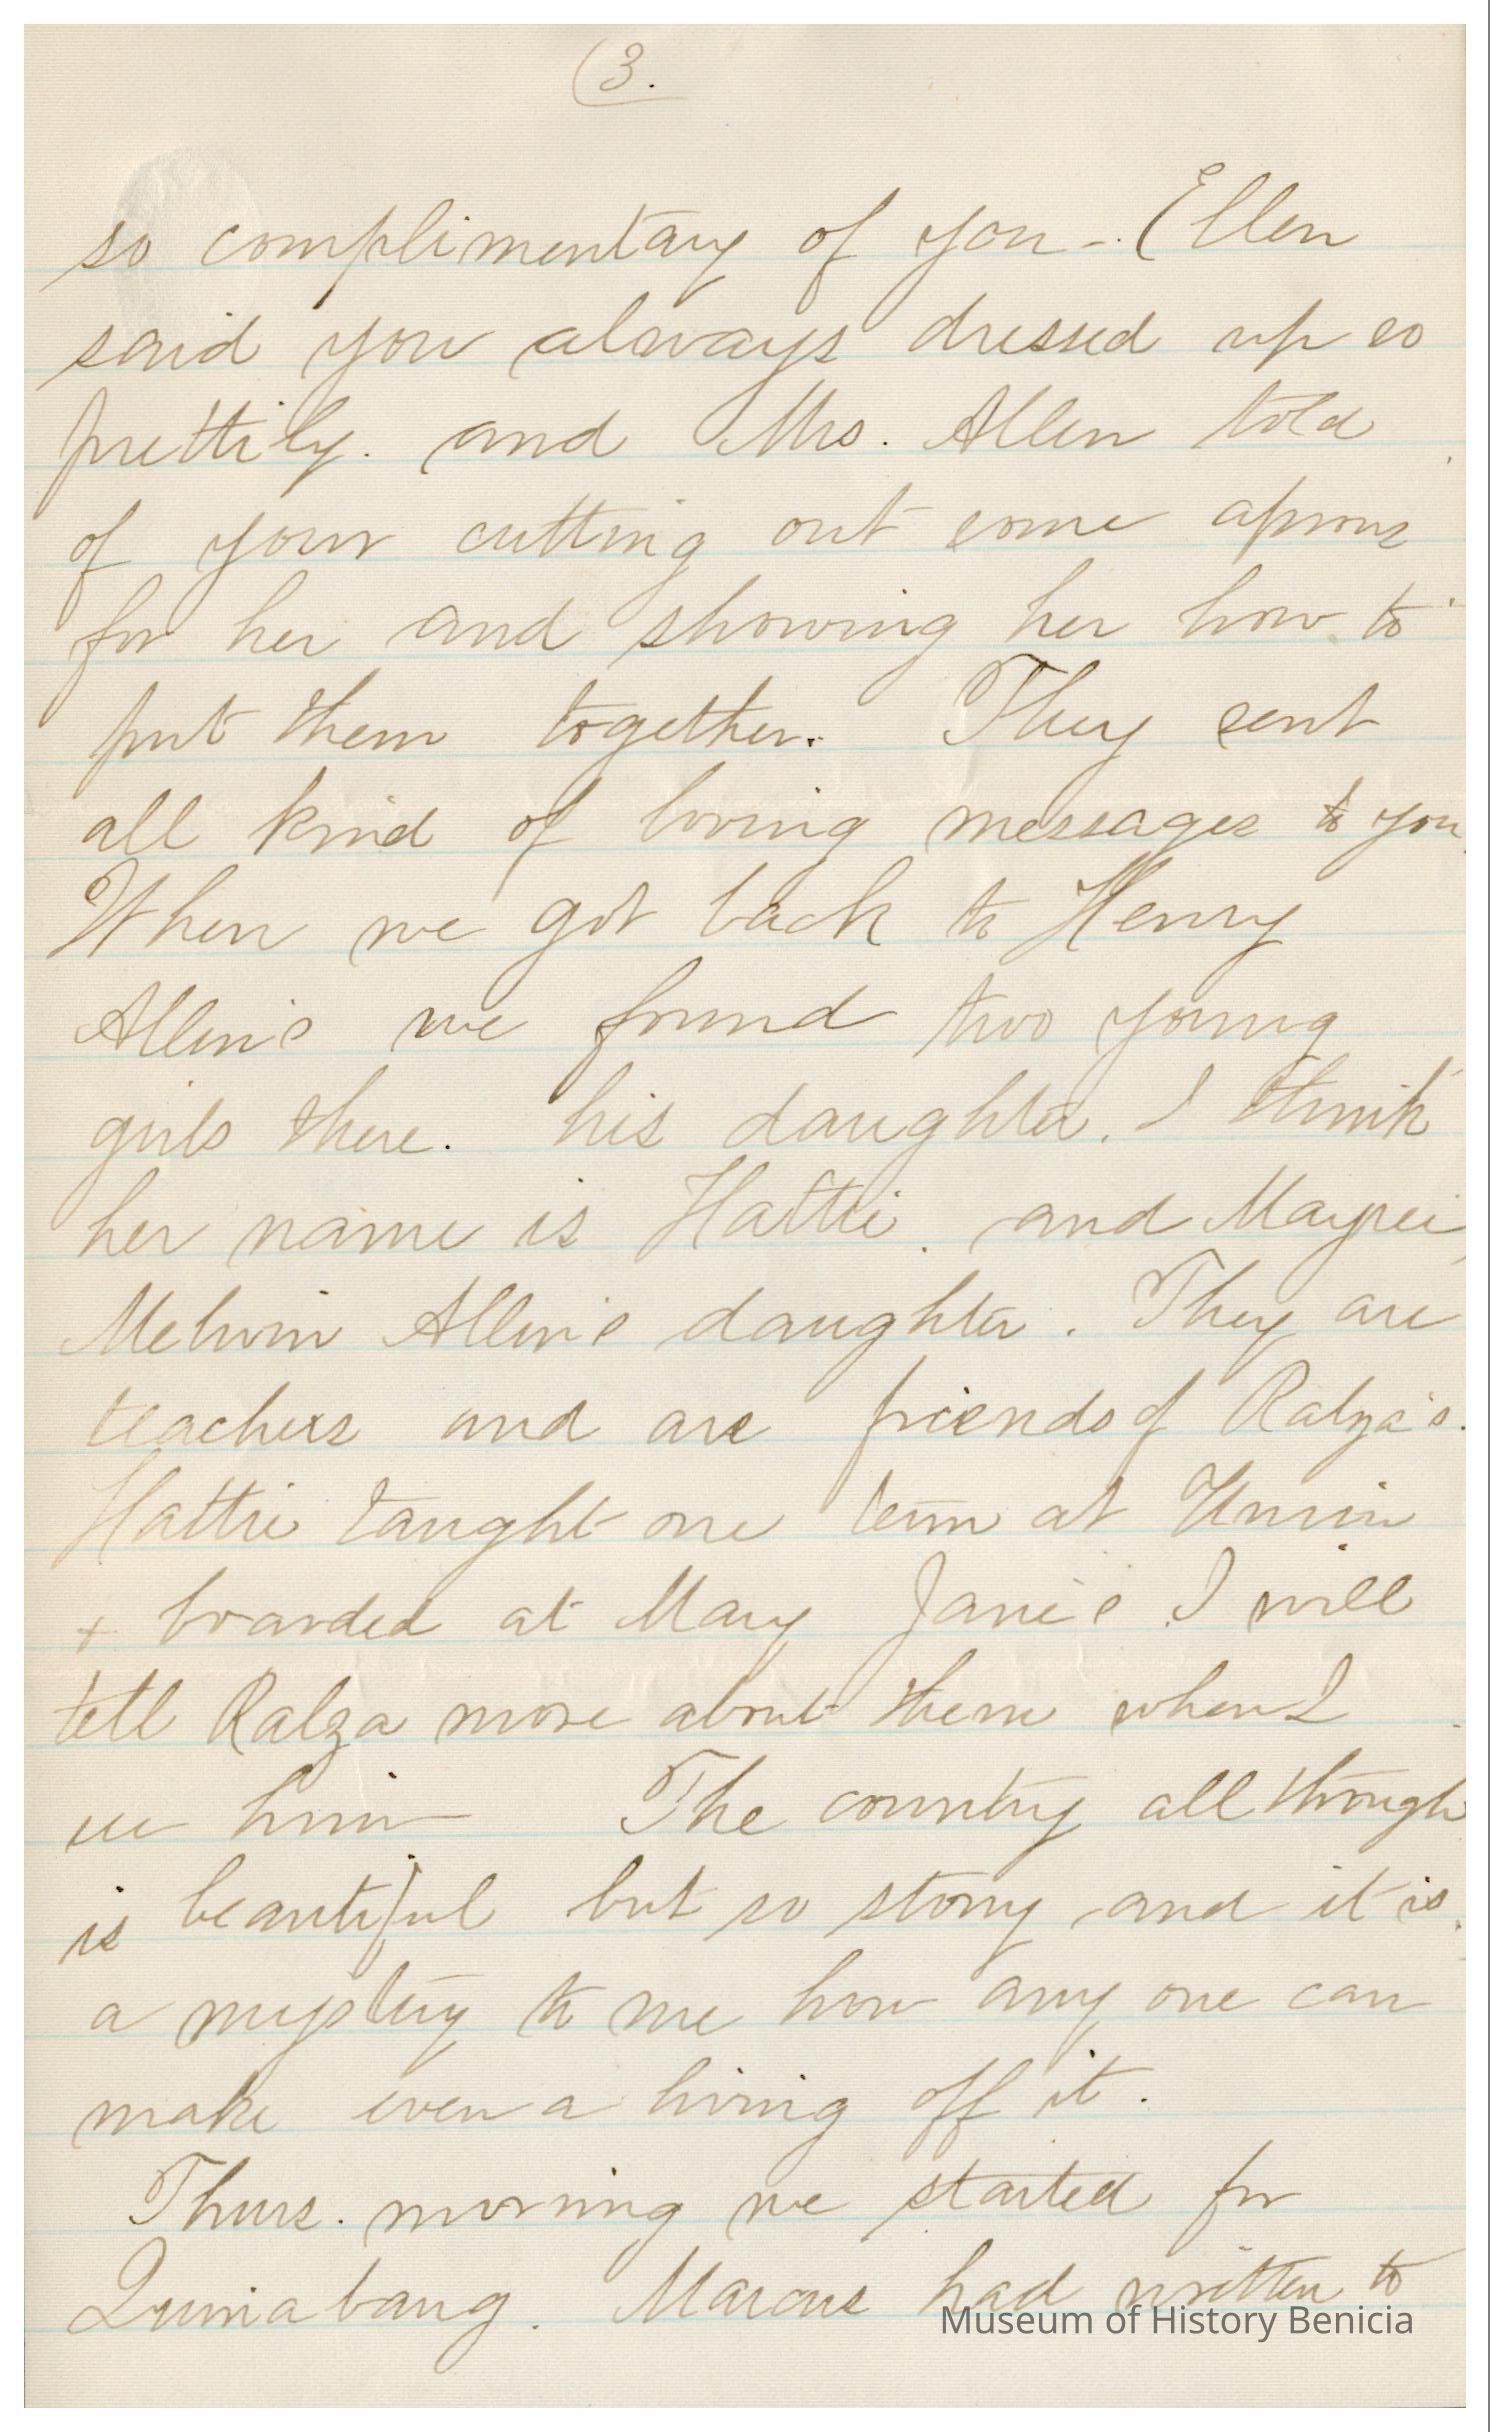 (3.
so complimentary of you - Ellen
said you always dressed up so
prettily. and Mrs. Allen told
of your cutting out some aprons
for her and showing her how to
put them together. They sent
all kind of loving messages to you.
When we got back to Henry
Allen's we found two young
girls there. his daughter. I think
her name is Hattie. and
Melvin Allen's daughter. They are
teachers and are friends of Ralza's.
Hattie taught one term at Union
+ boarded at Mary Jane's. I will
tell Ralza more about them when I
see him The country all through
is beautiful but so stony and it is
a mystery to me how any one can
make even a living off it.
Thurs. morning we started for
Quinabaug. Marcus had written to
Museum of History Benicia